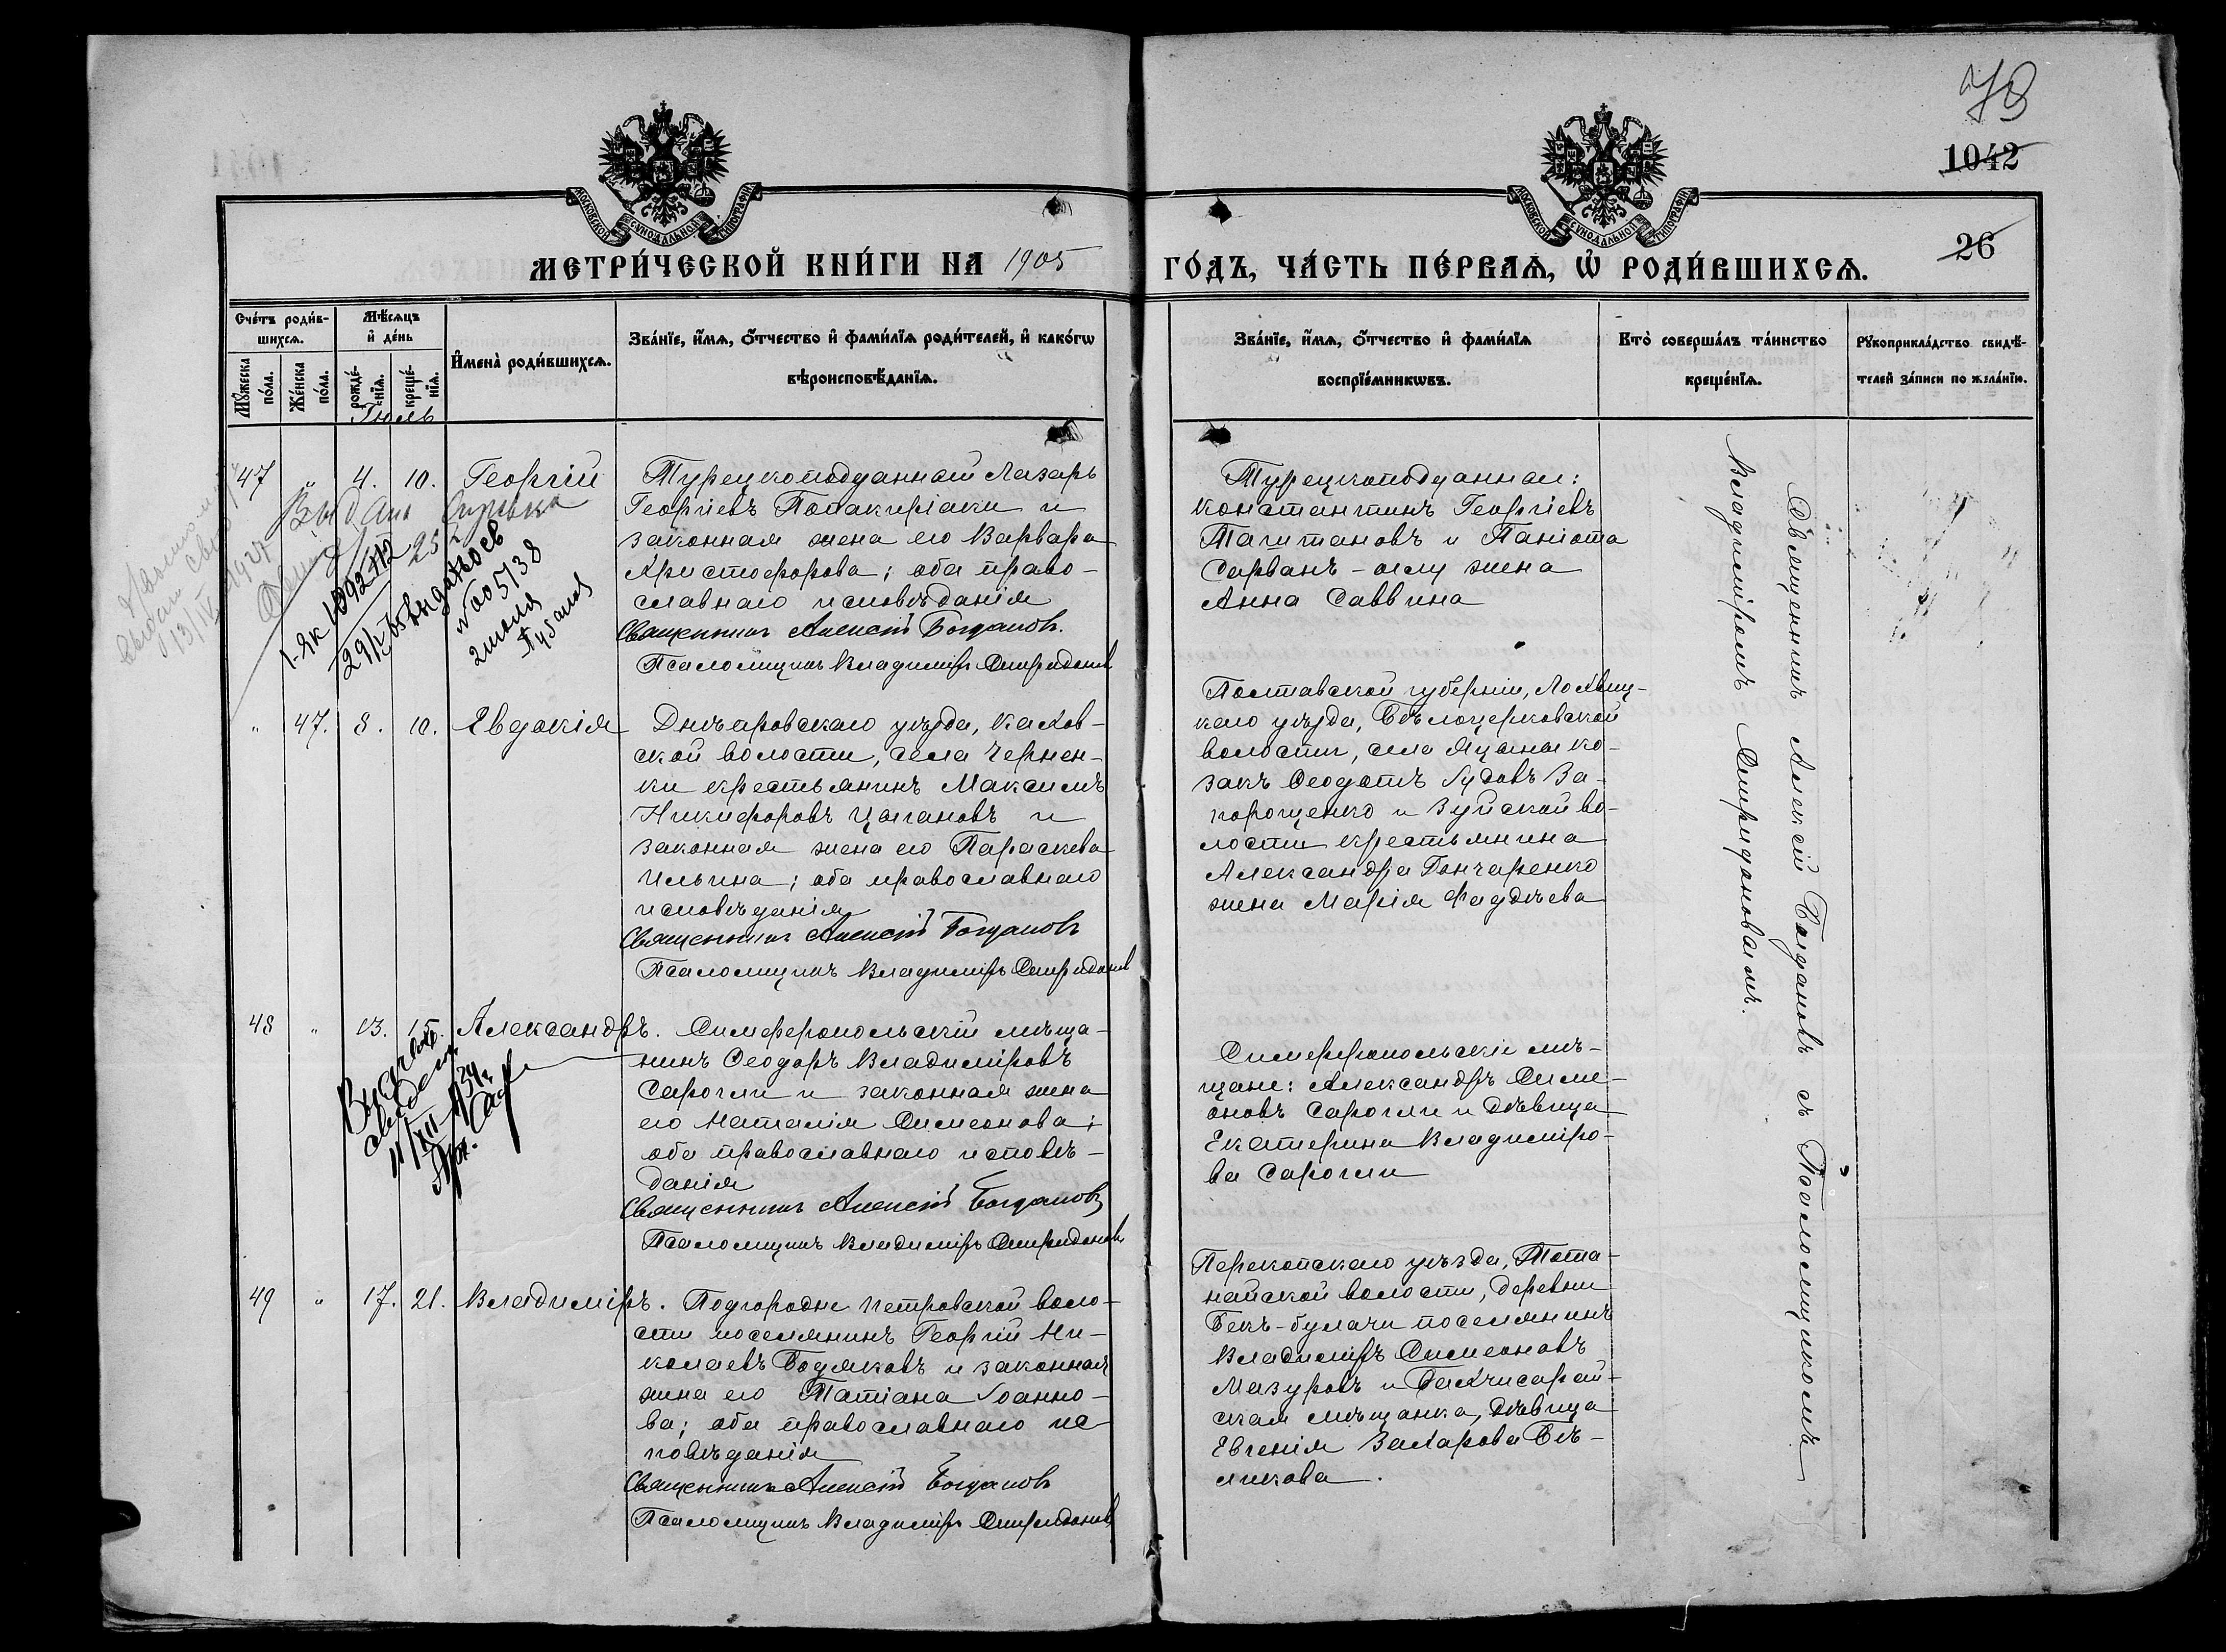 78
1042
26
МОСКОВСКОЙ СУНОДАЛЬНОЙ ТИПОГРАФІИ
МОСКОВСКОЙ СУНОДАЛЬНОЙ ТИПОГРАФІИ
МЕТРИ́ЧЕСКОЙ КНИ́ГИ НА 1905
ГО́ДЪ, ЧА́СТЬ ПЕ́РВАЯ, Ѽ РОДИ́ВШИХСЯ.
Сче́тъ роди́в-
шихся.
Мѣсяцъ
и҆ де́нь
Мꙋжеска
по́ла.
Же́нска
по́ла.
рожде́-
нія.
креще́-
нія.
И҆мена̀ роди́вшихся.
Зва́ніе, и҆́мя, ѻ҆́тчество и҆ фами́лія роди́телей, и҆ како́гѡ
вѣроисповѣ́данія.
Зва́ніе, и҆́мя, ѻ҆́тчество и҆ фами́лія
воспріе́мникѡвъ.
Кто̀ соверша́лъ та́инство
креще́нія.
Рꙋкоприкла́дство свидѣ́-
телей за́писи по жела́нію.
Іюль
47 " 4. 10. Георгій
Турецкоподданный Лазарь
Георгіевъ Попакиріаки и
законная жена его Варвара
Христофорова; оба право-
славнаго исповѣданія
Священникъ Алексій Богдановъ.
Псаломщикъ Владиміръ Спиридоновъ
Турецкоподданные:
Константинъ Георгіевъ
Таштановъ и Паніота
Сарванъ-оглу жена
Анна Саввина
Выдана справка
29/
№ 005138
2 июля
" 47. 8. 10. Евдокія
Днѣпровскаго уѣзда, Кахов-
ской волости, села Чернен-
ки крестьянинъ Максимъ
Никифоровъ Цыгановъ и
законная жена его Параскева
Ильина; оба православнаго
исповѣданія
Священникъ Алексій Богдановъ
Псаломщикъ Владиміръ Спиридоновъ
Полтавской губерніи, Лохвиц-
каго уѣзда, Бѣлоцерковской
волости, села Яцыны ко-
закъ Ѳеодотъ За-
порощенко и Зуйской во-
лости крестьянина
Александра Гончаренко
жена Марія Фаддѣева
48 " 13. 15. Александръ.
Симферопольскій мѣща-
нинъ Ѳеодоръ Владиміровъ
Сарогли и законная жена
его Наталія Симеонова;
оба православнаго исповѣ-
данія
Священникъ Алексій Богдановъ
Псаломщикъ Владиміръ Спиридоновъ
Симферопольскіе мѣ-
щане: Александръ Симе-
оновъ Сарогли и дѣвица
Екатерина Владиміро-
ва Сарогли
49 " 17. 21. Владиміръ.
Подгородне Петровской воло-
сти поселянинъ Георгій Ни-
колаевъ Бодяковъ и законная
жена его Татіана Іоанно-
ва; оба православнаго ис
повѣданія
Священникъ Алексій Богдановъ
Псаломщикъ Владиміръ Спиридоновъ
Перекопскаго уѣзда, Тота-
найской волости, деревни
Бекъ-булачи поселянинъ
Владиміръ Симеоновъ
Мазуровъ и Бахчисарай-
ская мѣщанка, дѣвица
Евгенія Захарова Бѣ-
ликова.
Священникъ Алексій Богдановъ съ Псаломщикомъ
Владиміромъ Спиридоновымъ.